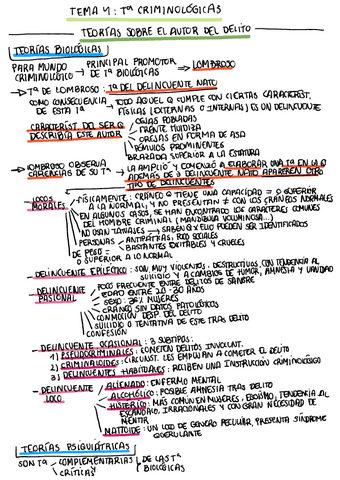 TEMA 4: Tª CRIMINOLÓGICAS
TEORÍAS SOBRE EL AUTOR DEL DELITO
TEORÍAS BIOLÓGICAS
PARA MUNDO CRIMINOLÓGICO → PRINCIPAL PROMOTOR DE Tª BIOLÓGICAS → LOMBROSO
→ Tª DE LOMBROSO: Tª DEL DELINCUENTE NATO
COMO CONSECUENCIA DE ESTA Tª → TODO AQUEL Q CUMPLE CON CIERTAS CARACTERÍST. FÍSICAS (EXTERNAS O INTERNAS) ES UN DELINCUENTE
CARACTERÍST. DEL SER Q DESCRIBÍA ESTE AUTOR
CEJAS POBLADAS
FRENTE HUIDIZA
OREJAS EN FORMA DE ASA
PÓMULOS PROMINENTES
BRAZADA SUPERIOR A LA ESTATURA
LOMBROSO OBSERVA CARENCIAS DE SU Tª → LA AMPLIÓ Y COMENZÓ A ELABORAR UNA Tª EN LA Q ADEMÁS DE D DELINCUENTE NATO APARECEN OTRO TIPO DE DELINCUENTES
- LOCOS MORALES
FÍSICAMENTE: CRÁNEO Q TIENE UNA CAPACIDAD = O SUPERIOR A LA NORMAL Y NO PRESENTAN ≠ CON LOS CRÁNEOS NORMALES
EN ALGUNOS CASOS, SE HAN ENCONTRADO LOS CARACTERES COMUNES DEL HOMBRE CRIMINAL (MANDÍBULA VOLUMINOSA...)
NO USAN TATUAJES → SABEN Q X ELLO PUEDEN SER IDENTIFICADOS
PERSONAS ANTIPÁTICAS, POCO SOCIALES
BASTANTES EXCITABLES Y CRUELES
DE PESO = O SUPERIOR A LO NORMAL
- DELINCUENTE EPILÉCTICO: SON MUY VIOLENTOS, DESTRUCTIVOS, CON TENDENCIA AL SUICIDIO Y A CAMBIOS DE HUMOR, AMNESIA Y VANIDAD
- DELINCUENTE PASIONAL
POCO FRECUENTE ENTRE DELITOS DE SANGRE
EDAD ENTRE 20 - 30 AÑOS
SEXO: 36% MUJERES
CRÁNEO SIN DATOS PATOLÓGICOS
CONMOCIÓN DESP. DEL DELITO
SUICIDIO O TENTATIVA DE ESTE TRAS DELITO
CONFESIÓN
- DELINCUENTE OCASIONAL: 3 SUBTIPOS:
1) PSEUDOCRIMINALES: COMETEN DELITOS INVOLUNT.
2) CRIMINALOIDES: CIRCUNST. LES EMPUJAN A COMETER EL DELITO
3) DELINCUENTES HABITUALES: RECIBEN UNA INSTRUCCIÓN CRIMINOLÓGICO
- DELINCUENTE LOCO
ALIENADO: ENFERMO MENTAL
ALCOHÓLICO: POSIBLE AMNESIA TRAS DELITO
HISTÉRICO: MÁS COMÚN EN MUJERES, EGOÍSMO, TENDENCIA AL ESCÁNDALO, IRRACIONALES Y CON GRAN NECESIDAD DE MENTIR
MATTOIDE: UN LOCO DE GÉNERO PECULIAR, PRESENTA SÍNDROME QUERULANTE
TEORÍAS PSIQUIÁTRICAS
SON Tª COMPLEMENTARIAS CRÍTICAS DE LAS Tª BIOLÓGICAS